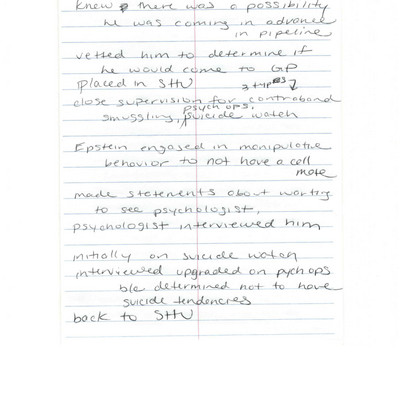 knew there was a possibility
he was coming in advance
in pipeline
vetted him to determine if
he would come to GP
placed in SHU
3 types
close supervision for contraband
psych ops,
smuggling, suicide watch
Epstein engaged in manipulative
behavior to not have a cell
mate
made statements about wanting
to see psychologist,
psychologist interviewed him
initially on suicide watch
interviewed upgraded on pych ops
b/c determined not to have
suicide tendencies
back to SHU